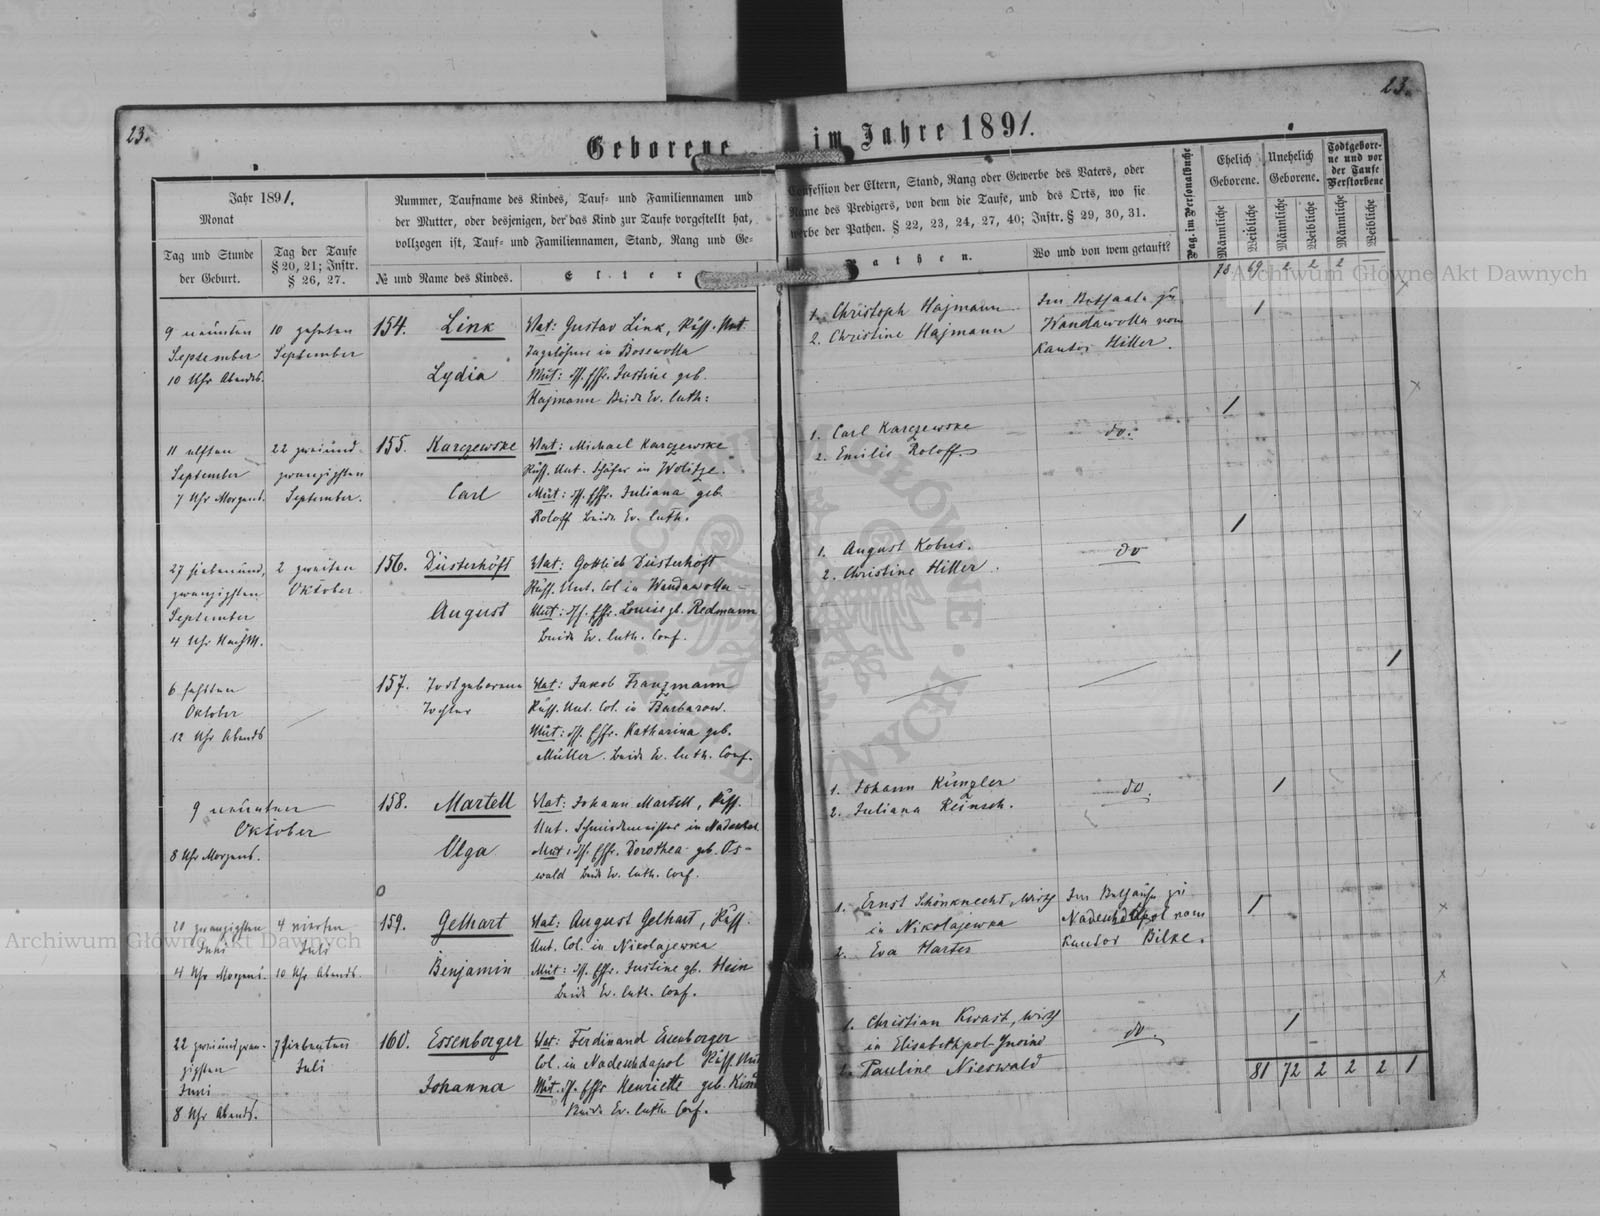 23.
23.
Geborene im Jahre 1891.
Jahr 1891.
Monat
Tag und Stunde
der Geburt.
Tag der Taufe
§ 20, 21; Instr.
§ 26, 27.
Nummer, Taufname des Kindes, Tauf- und Familiennamen und
der Mutter, oder desjenigen, der das Kind zur Taufe vorgestellt hat,
vollzogen ist, Tauf- und Familiennamen, Stand, Rang und Ge-
№ und Name des Kindes.
Elter
Confession der Eltern, Stand, Rang oder Gewerbe des Vaters, oder
Name des Predigers, von dem die Taufe, und des Orts, wo sie
werbe der Pathen. § 22, 23, 24, 27, 40; Instr. § 29, 30, 31.
Pathen.
Wo und von wem getauft?
Pag. im Personalbuche
Ehelich
Geborene.
Unehelich
Geborene.
Todtgebore-
ne und vor
der Taufe
Verstorbene
Männliche
Weibliche
Männliche
Weibliche
Männliche
Weibliche
78 69 2 2 2 —
9 neunten
September
10 Uhr Abends.
10 zehnten
September
154. Link
Lydia
Vat: Gustav Link, Russ. Unt.
Tagelöhner in Boscwolla
Mut: dss. Ehfr. Justine geb.
Hajmann Beide Ev. luth:
1. Christoph Hajmann
2. Christine Hajmann
Im Betsaale zu
Wandawolla vom
Kantor Hiller.
1
11 elften
September
7 Uhr Morgens.
22 zweiund-
zwanzigsten
September.
155. Karczewske
Carl
Vat: Michael Karczewske
Russ. Unt. Schäfer in Wolitze.
Mut: dss. Ehfr. Juliana geb.
Roloff beide Ev. luth.
1. Carl Karczewske
2. Emilie Roloff
do.
1
27 siebenund,
zwanzigsten
September
4 Uhr NachM.
2 zweiten
Oktober
156. Düsterhöft
August
Vat: Gottlieb Düsterhöft
Russ. Unt. Col in Wandawolla
Mut: dss. Ehfr. Louise gb. Redmann
beide Ev. luth. Conf.
1. August Kobus.
2. Christine Hiller.
do
1
6 sechsten
Oktober
12 Uhr Abends
157. Todtgeborene
Tochter
Vat: Jakob Franzmann
Russ. Unt. Col. in Barbarow.
Mut: dss. Ehfr. Katharina geb.
Müller. beide Ev. luth. Conf.
1
9 neunten
Oktober
8 Uhr Morgens.
158. Martell
Olga
Vat: Johann Martell, Russ.
Unt. Schmiedemeister in
Mut: dss. Ehfr. Dorothea geb. Os-
wald beide Ev. luth. Conf.
1. Johann Künzler
2. Juliana Reinsch.
do.
1
20 zwanzigsten
Juni
4 Uhr Morgens.
4 vierten
Juli
10 Uhr Abends.
159. Gelhart
Benjamin
Vat: August Gelhart, Russ.
Unt. Col. in Nikolajewka
Mut: dss. Ehfr. Justine gb. Hein
beide Ev. luth. Conf.
1. Ernst Schönknecht, Wirth
in Nikolajewka
2. Eva Harter
Im Bethause zu
Nadeschdapol vom
Kantor Bilke.
1
22 zweiundzwan-
zigsten
Juni
8 Uhr Abends.
7 siebenten
Juli
160. Essenberger
Johanna
Vat: Ferdinand Essenberger
Col. in Nadeschdapol Russ. Unt
Mut: dss. Ehfr Henriette geb.
beide Ev. luth Conf.
1. Christian Kwast, Wirth
in Elisabethpol-Gnoino
2. Pauline Nieswald
do.
1
81 72 2 2 2 1
Archiwum Główne Akt Dawnych
Archiwum Główne Akt Dawnych